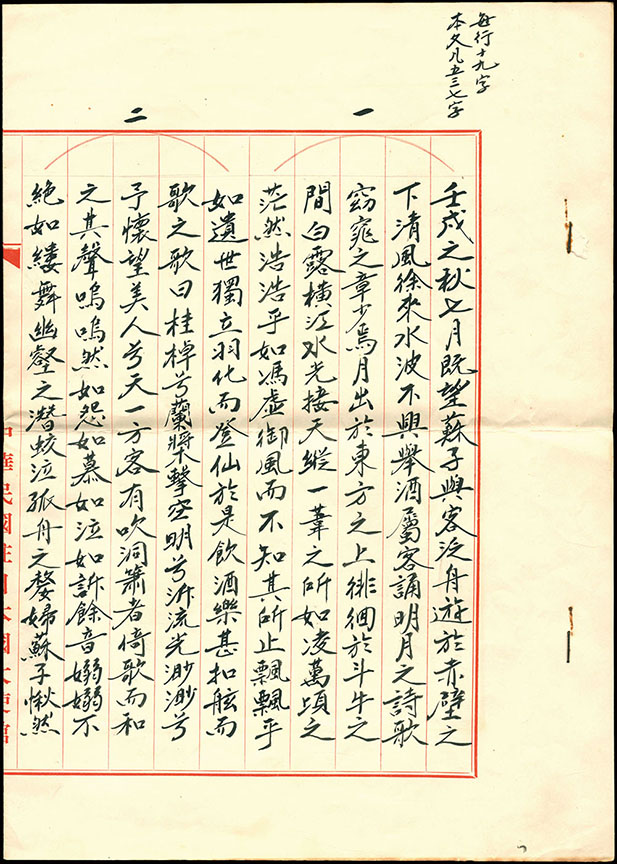 每行十九字
本文凡五三七字
一
二
壬戌之秋七月既望蘇子與客泛舟遊於赤壁之
下清風徐來水波不興舉酒屬客誦明月之詩歌
窈窕之章少焉月出於東方之上徘徊於斗牛之
間白露橫江水光接天縱一葦之所如凌萬頃之
茫然浩浩乎如馮虛御風而不知其所止飄飄乎
如遺世獨立羽化而登仙於是飲酒樂甚扣舷而
歌之歌曰桂棹兮蘭槳擊空明兮泝流光渺渺兮
予懷望美人兮天一方客有吹洞簫者倚歌而和
之其聲嗚嗚然如怨如慕如泣如訴餘音嫋嫋不
絕如縷舞幽壑之潛蛟泣孤舟之嫠婦蘇子愀然
中華民國駐日本國大使館